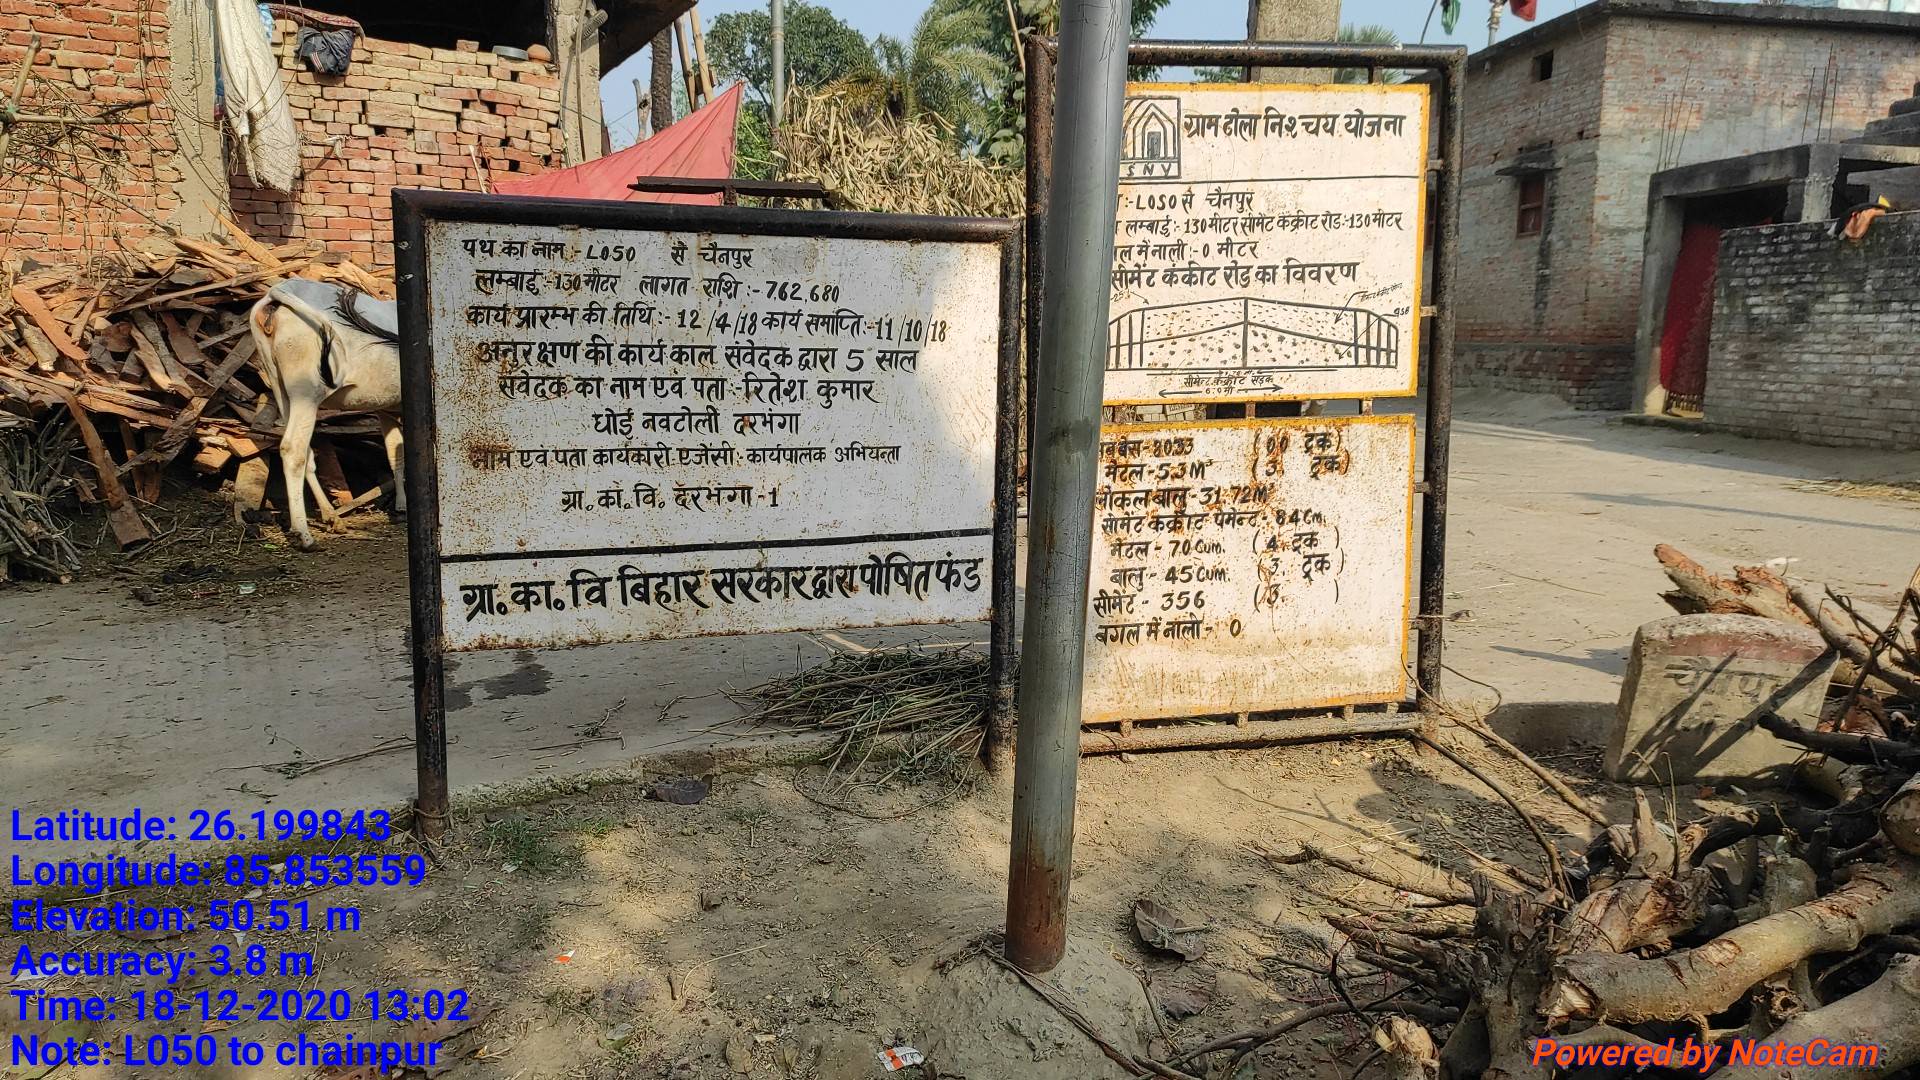 पथ का नाम :- L050 से चैनपुर
लम्बाई :- 130 मीटर लागत राशि :- 762,680
कार्य प्रारम्भ की तिथि :- 12/4/18 कार्य समाप्ति :- 11/10/18
अनुरक्षण की कार्य काल संवेदक द्वारा 5 साल
संवेदक का नाम एवं पता :- रितेश कुमार
घोई नवटोली दरभंगा
नाम एवं पता कार्यकारी एजेंसी : कार्यपालक अभियन्ता
ग्रा. का. वि. दरभंगा -1
ग्रा. का. वि बिहार सरकार द्वारा पोषित फंड
ग्राम टोला निश्चय योजना
S N Y
:- L050 से चैनपुर
लम्बाई :- 130 मीटर सीमेंट कंक्रीट रोड :- 130 मीटर
में नाली :- 0 मीटर
सीमेंट कंक्रीट रोड का विवरण
सीमेन्ट कंक्रीट सड़क
(00 ट्रक)
मेटल - 5.3 M³ (3 ट्रक)
लोकल बालु - 31.72 M³
सीमेंट कंक्रीट पेमेन्ट - 84 Cm.
मेटल - 70 Cum. (4 ट्रक)
बालु - 45 Cum. (3 ट्रक)
सीमेंट - 356 (3 )
बगल में नाली - 0
Latitude: 26.199843
Longitude: 85.853559
Elevation: 50.51 m
Accuracy: 3.8 m
Time: 18-12-2020 13:02
Note: L050 to chainpur
Powered by NoteCam